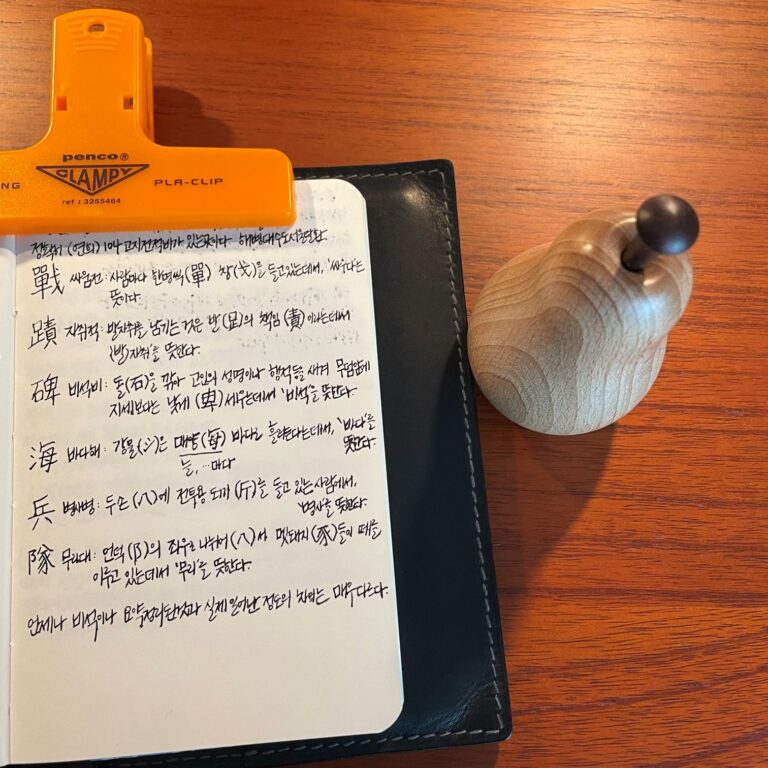 penco®
CLAMPY
NG
PLA-CLIP
ref : 3255464
(연희) 104 고지전적비가 있는곳이다. 해병대수도서울탈환
戰 싸움전 : 사람마다 한명씩(單) 창(戈)을 들고있는데서, '싸우다'는
뜻이다.
蹟 자취적 : 발자취를 남기는 것은 발(足)의 책임(責)이라는데서
(발)자취'를 뜻한다.
碑 비석비 : 돌(石)을 깎아 고인의 성명이나 행적을 새겨 무덤앞에
지세보다는 낮게(卑) 세우는데서 '비석'을 뜻한다.
海 바다해 : 강물(氵)은 매양(每) 바다로 흘러간다는데서, '바다'를
뜻한다.
늘, …마다
兵 병사병 : 두손(八)에 전투용 도끼(斤)를 들고 있는 사람에서,
'병사'를 뜻한다.
隊 무리대 : 언덕(阝)의 좌우로 나뉘어(八)서 멧돼지(豕)들이 떼를
이루고 있는데서 '무리'를 뜻한다.
언제나 비석이나 요약정리된것과 실제 일어난 정도의 차이는 매우 다르다.